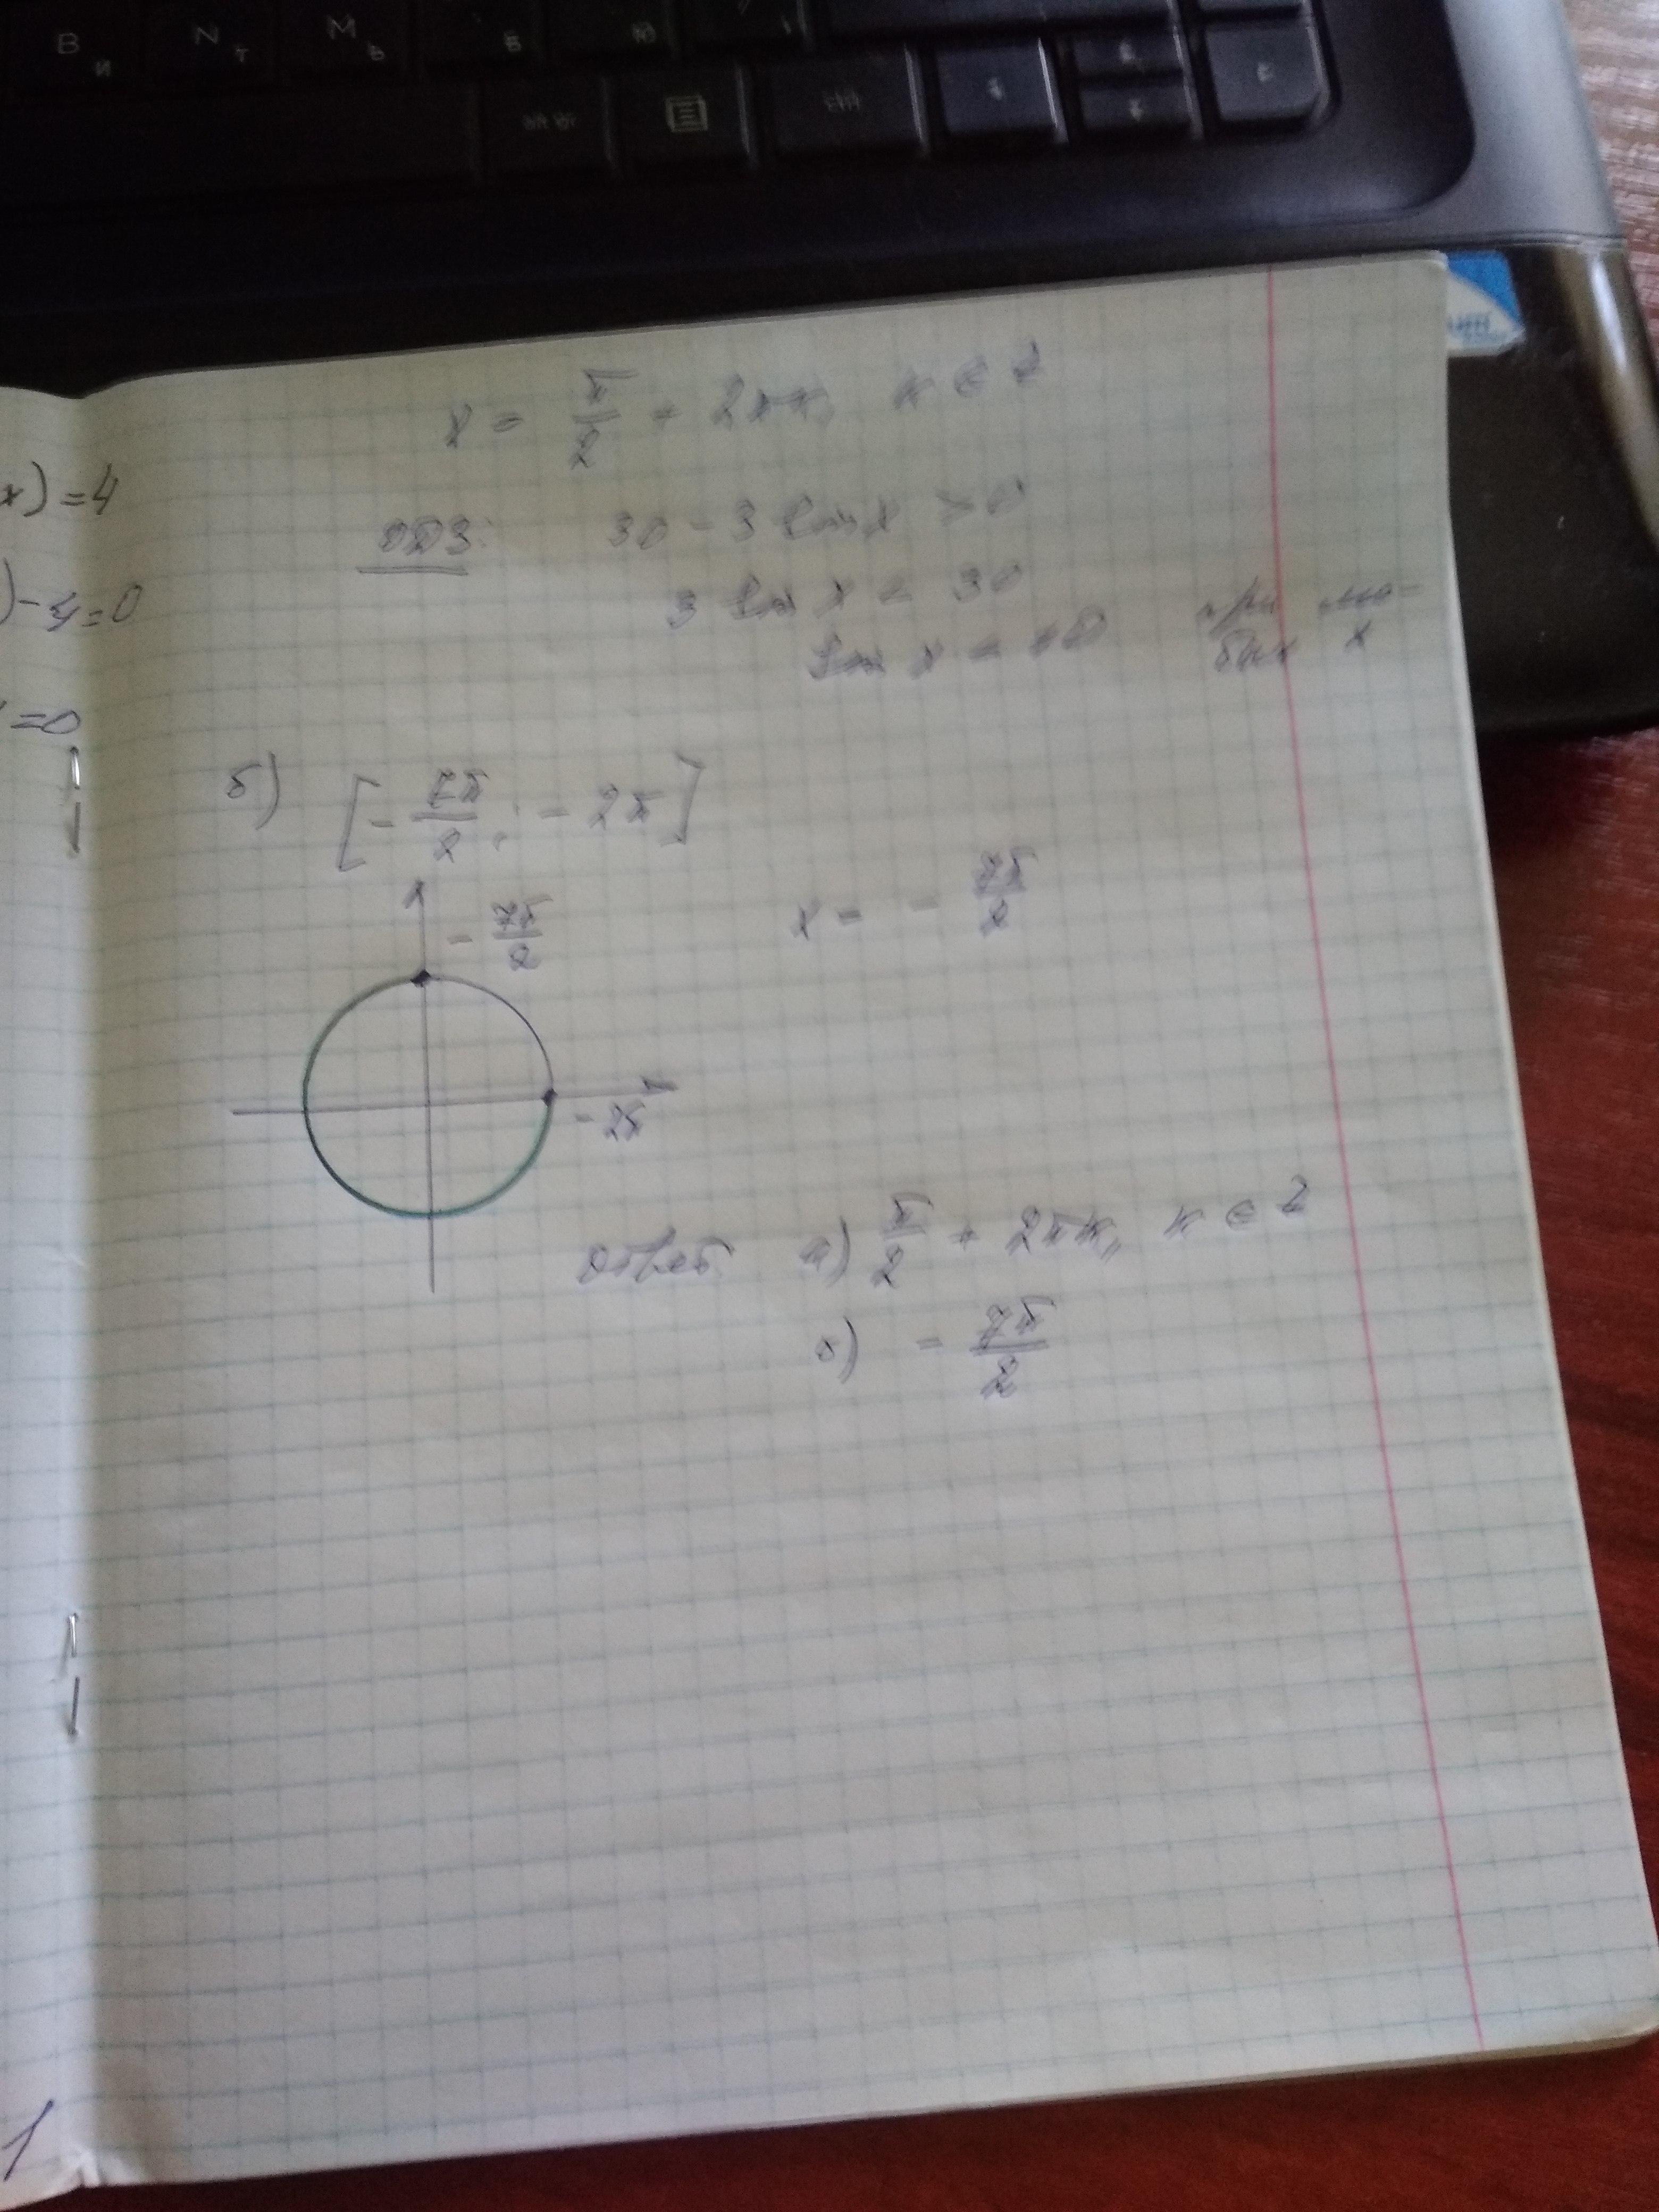 B И N Т M Ь Б Ю
x) = 4
) - 4 = 0
= 0
x = π/2 + 2πк, к ∈ Z
ОДЗ: 30 - 3 sin x > 0
3 sin x < 30
sin x < 10 при лю-
бых x
б) [- 7π/2; - 2π]
- 7π/2
x = - 7π/2
- 2π
Ответ: а) π/2 + 2πк, к ∈ Z
б) - 7π/2
1